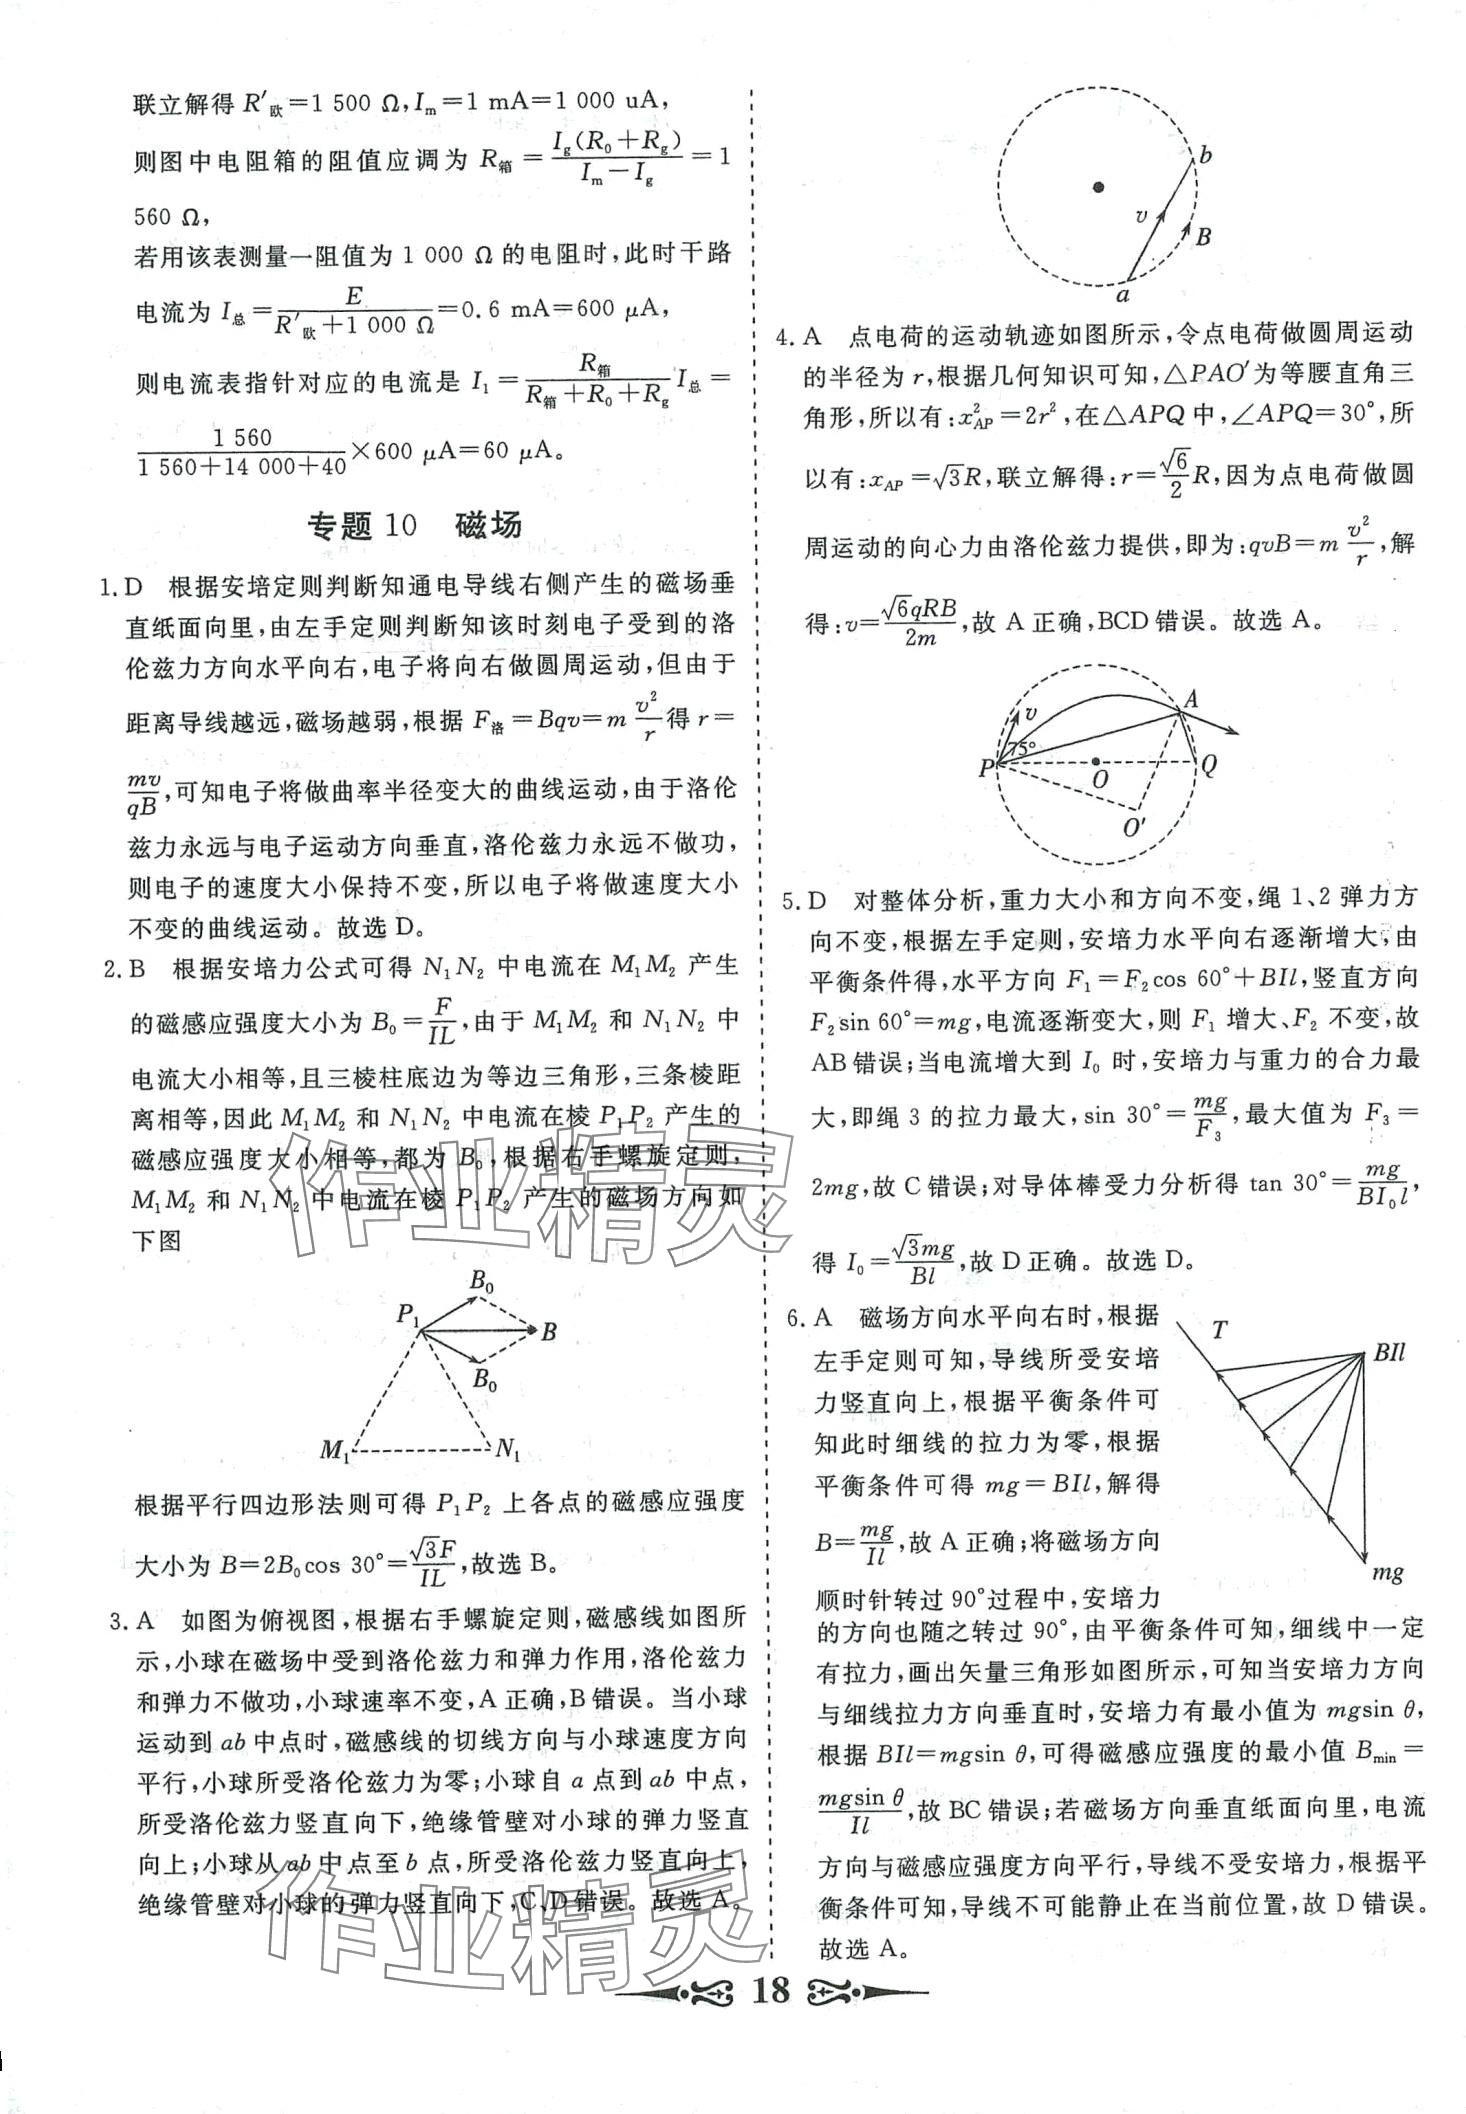 联立解得 R′欧=1 500 Ω,Im=1 mA=1 000 uA,
则图中电阻箱的阻值应调为 R箱=Ig(R0+Rg)/(Im−Ig)=1
560 Ω,
若用该表测量一阻值为 1 000 Ω 的电阻时,此时干路
电流为 I总=E/(R′欧+1 000 Ω)=0.6 mA=600 μA,
则电流表指针对应的电流是 I1=R箱/(R箱+R0+Rg) I总=
1 560/(1 560+14 000+40)×600 μA=60 μA。
专题 10 磁场
1. D 根据安培定则判断知通电导线右侧产生的磁场垂
直纸面向里,由左手定则判断知该时刻电子受到的洛
伦兹力方向水平向右,电子将向右做圆周运动,但由于
距离导线越远,磁场越弱,根据 F洛=Bqv=m v²/r 得 r=
mv/qB,可知电子将做曲率半径变大的曲线运动,由于洛伦
兹力永远与电子运动方向垂直,洛伦兹力永远不做功,
则电子的速度大小保持不变,所以电子将做速度大小
不变的曲线运动。故选 D。
2. B 根据安培力公式可得 N1N2 中电流在 M1M2 产生
的磁感应强度大小为 B0=F/IL,由于 M1M2 和 N1N2 中
电流大小相等,且三棱柱底边为等边三角形,三条棱距
离相等,因此 M1M2 和 N1N2 中电流在棱 P1P2 产生的
磁感应强度大小相等,都为 B0,根据右手螺旋定则,
M1M2 和 N1N2 中电流在棱 P1P2 产生的磁场方向如
下图
B0
P1
B
B0
M1
N1
根据平行四边形法则可得 P1P2 上各点的磁感应强度
大小为 B=2B0cos 30°=√3F/IL,故选 B。
3. A 如图为俯视图,根据右手螺旋定则,磁感线如图所
示,小球在磁场中受到洛伦兹力和弹力作用,洛伦兹力
和弹力不做功,小球速率不变,A 正确,B 错误。当小球
运动到 ab 中点时,磁感线的切线方向与小球速度方向
平行,小球所受洛伦兹力为零;小球自 a 点到 ab 中点,
所受洛伦兹力竖直向下,绝缘管壁对小球的弹力竖直
向上;小球从 ab 中点至 b 点,所受洛伦兹力竖直向上,
绝缘管壁对小球的弹力竖直向下,C、D 错误。故选 A。
b
v
B
a
4. A 点电荷的运动轨迹如图所示,令点电荷做圆周运动
的半径为 r,根据几何知识可知,△PAO′为等腰直角三
角形,所以有:x²AP=2r²,在△APQ 中,∠APQ=30°,所
以有:xAP=√3R,联立解得:r=√6/2 R,因为点电荷做圆
周运动的向心力由洛伦兹力提供,即为:qvB=m v²/r,解
得:v=√6qRB/2m,故 A 正确,BCD 错误。故选 A。
v
A
75°
P
O
Q
O′
5. D 对整体分析,重力大小和方向不变,绳 1、2 弹力方
向不变,根据左手定则,安培力水平向右逐渐增大,由
平衡条件得,水平方向 F1=F2cos 60°+BIl,竖直方向
F2sin 60°=mg,电流逐渐变大,则 F1 增大、F2 不变,故
AB 错误;当电流增大到 I0 时,安培力与重力的合力最
大,即绳 3 的拉力最大,sin 30°=mg/F3,最大值为 F3=
2mg,故 C 错误;对导体棒受力分析得 tan 30°=mg/BI0l,
得 I0=√3mg/Bl,故 D 正确。故选 D。
6. A 磁场方向水平向右时,根据
左手定则可知,导线所受安培
力竖直向上,根据平衡条件可
知此时细线的拉力为零,根据
平衡条件可得 mg=BIl,解得
B=mg/Il,故 A 正确;将磁场方向
顺时针转过 90°过程中,安培力
T
BIl
mg
的方向也随之转过 90°,由平衡条件可知,细线中一定
有拉力,画出矢量三角形如图所示,可知当安培力方向
与细线拉力方向垂直时,安培力有最小值为 mgsin θ,
根据 BIl=mgsin θ,可得磁感应强度的最小值 Bmin=
mgsin θ/Il,故 BC 错误;若磁场方向垂直纸面向里,电流
方向与磁感应强度方向平行,导线不受安培力,根据平
衡条件可知,导线不可能静止在当前位置,故 D 错误。
故选 A。
18
作业精灵
作业精灵